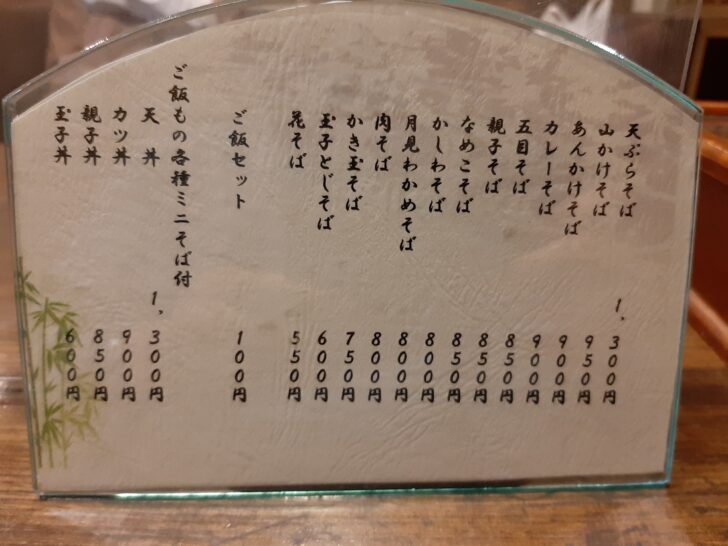 天ぷらそば 1,300円
山かけそば 950円
あんかけそば 900円
カレーそば 900円
五目そば 850円
親子そば 850円
なめこそば 850円
かしわそば 800円
月見わかめそば 800円
肉そば 800円
かき玉そば 750円
玉子とじそば 600円
花そば 550円
ご飯セット 100円
ご飯もの各種ミニそば付
天丼 1,300円
カツ丼 900円
親子丼 850円
玉子丼 600円